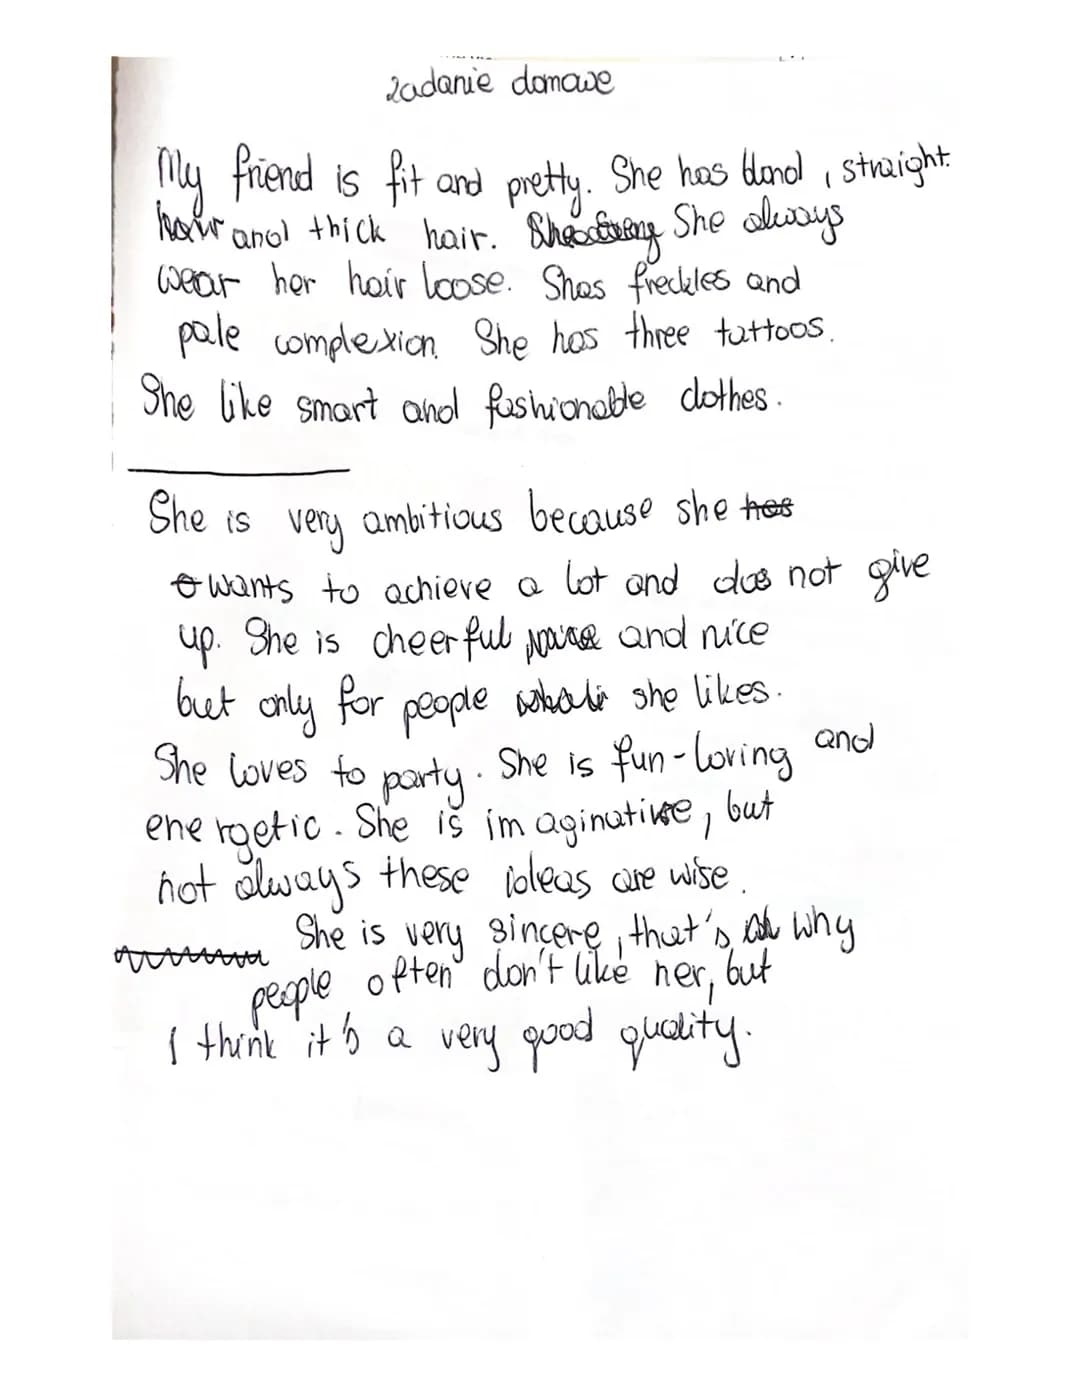 zadanie domowe
My friend is fit and pretty. She has blond, straight
hair and thick hair. She always
wear her hair loose. Shas freckles and
pale complexion. She has three tattoos.
She like smart and fashionable clothes.
She is very ambitious because she has
wants to achieve a lot and does not give
up. She is cheerful and nice
but only for people she likes.
She loves to party. She is fun-loving and
energetic. She is imaginative, but
not always these ideas are wise.
She is very sincere, that's why
people often don't like her, but
I think it's a very good quality.